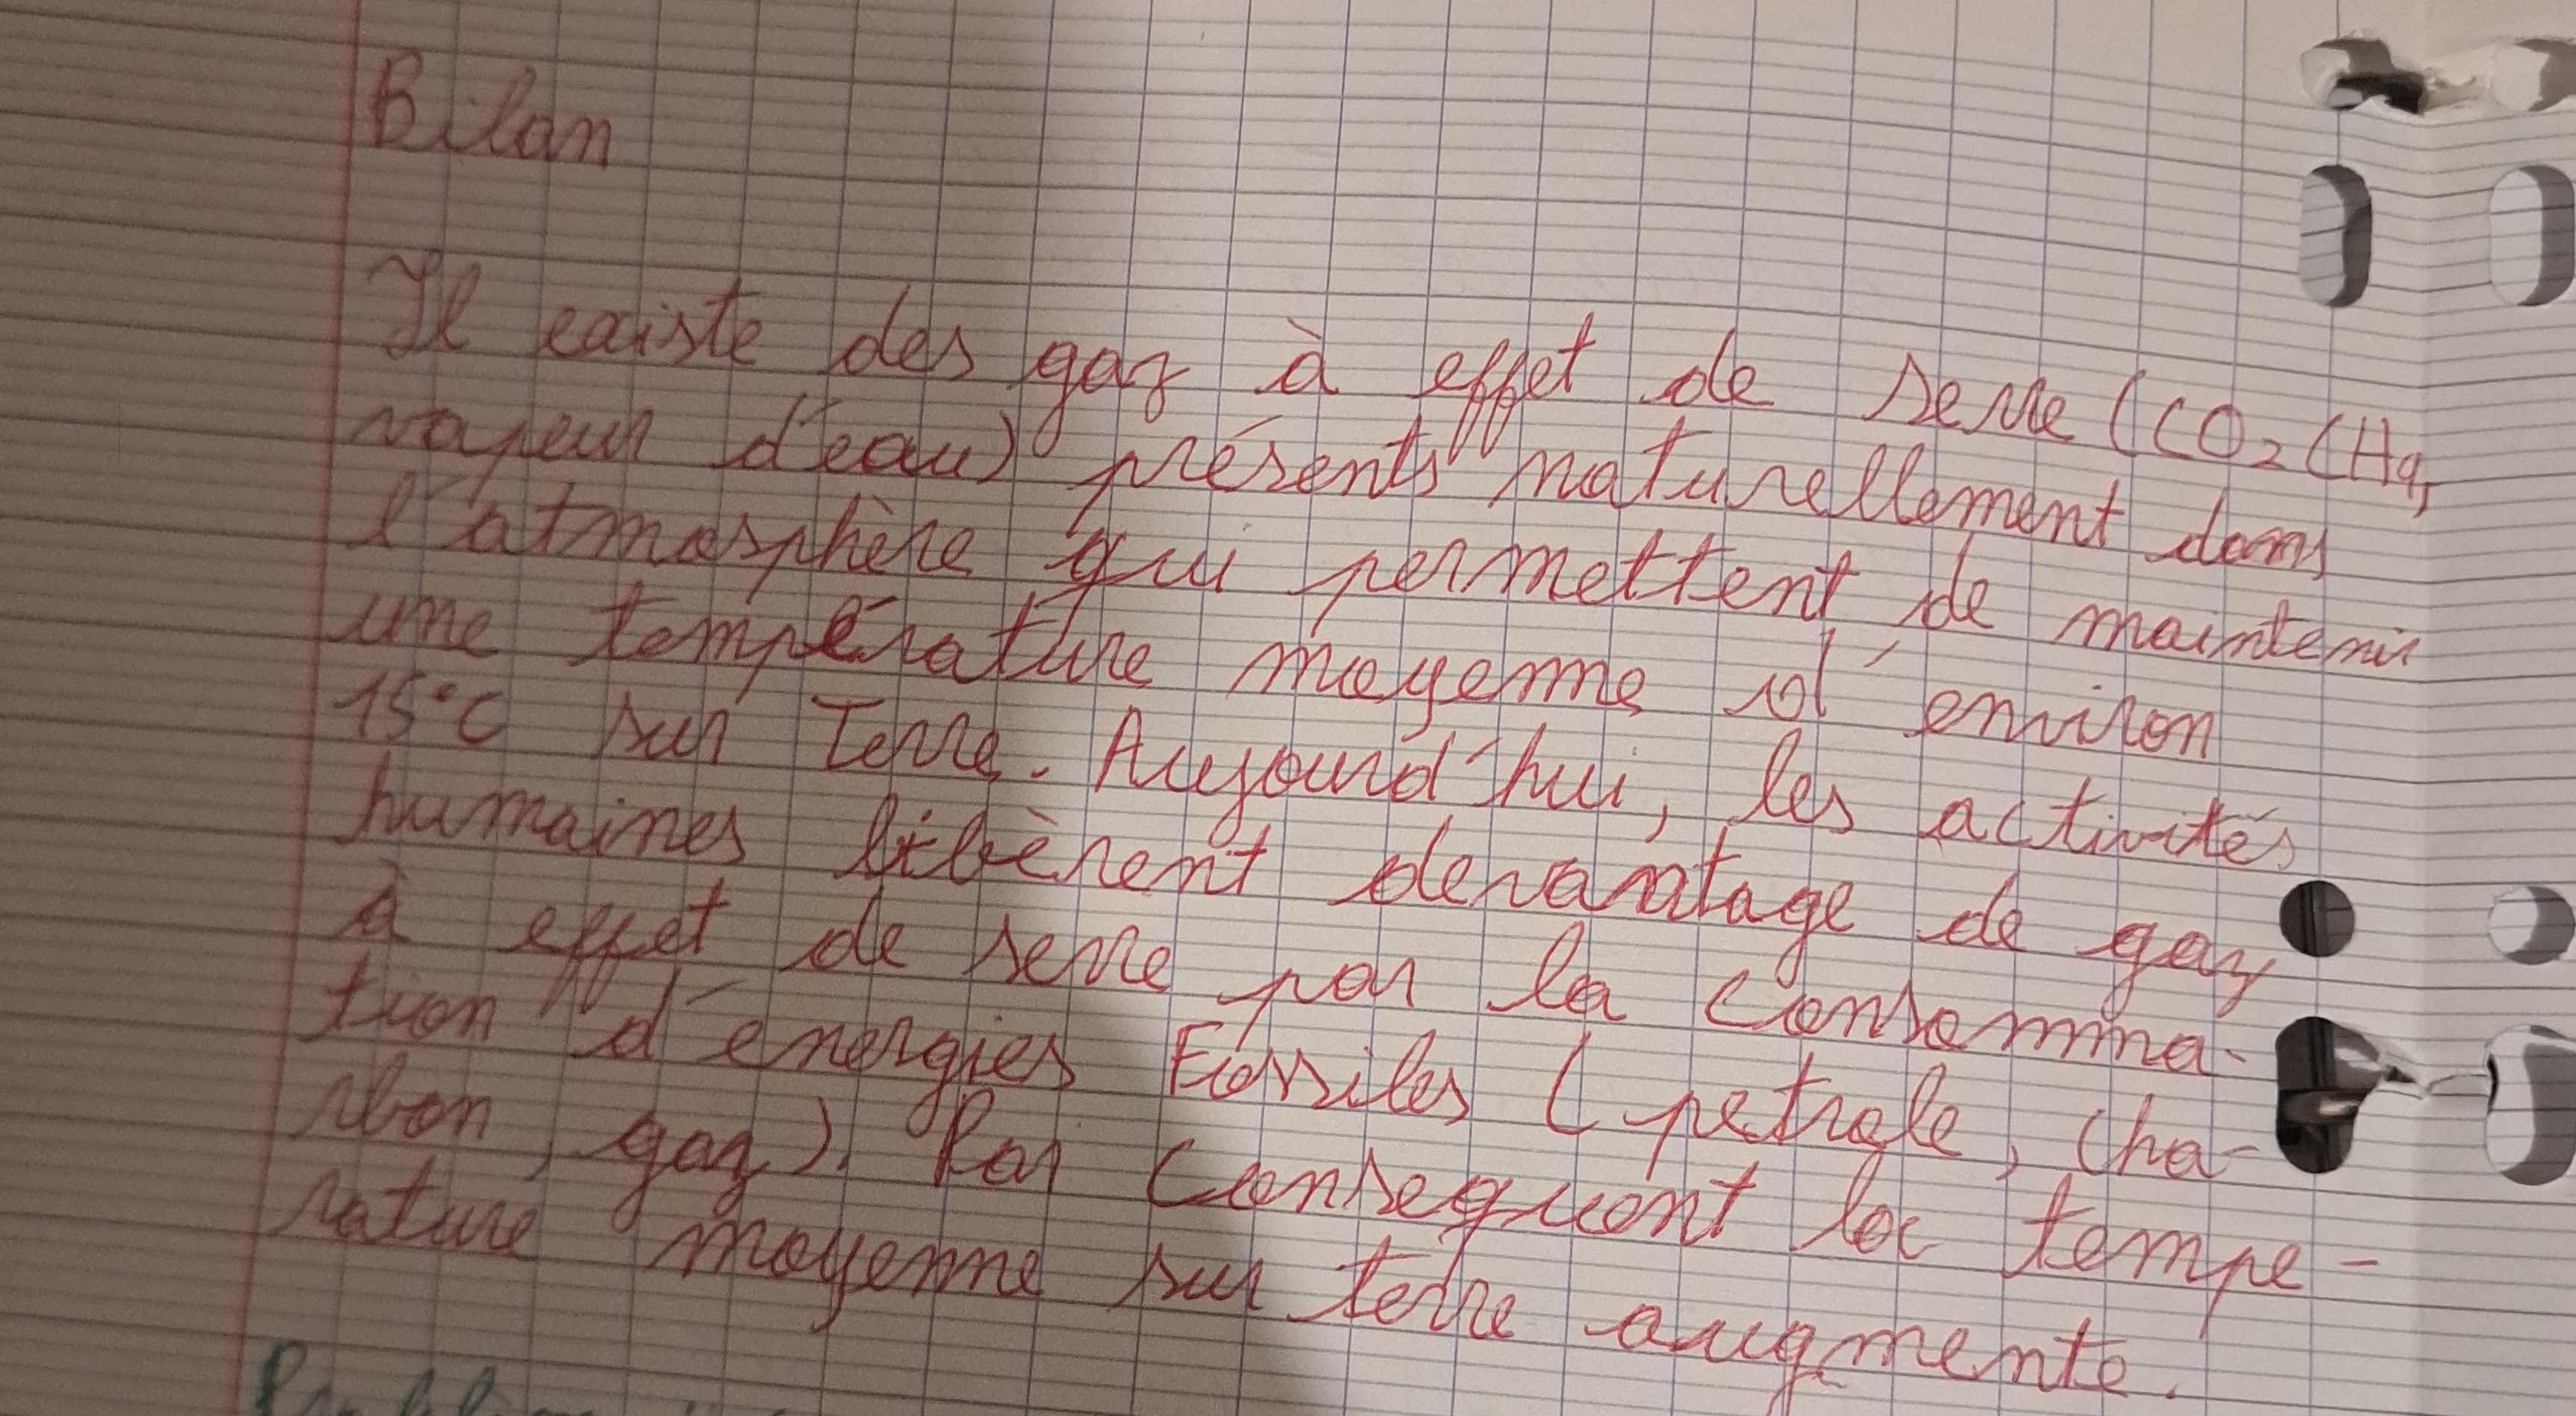 Bilan
Il existe des gaz à effet de serre (CO2 CH4,
vapeur d'eau) présents naturellement dans
l'atmosphère qui permettent de maintenir
une température moyenne d'environ
15°C sur Terre. Aujourd'hui, les activités
humaines libèrent devantage de gaz
à effet de serre par la consomma-
tion d'énergies Fossiles (petrole, cha-
rbon, gaz). Par Consequent la tempe-
rature moyenne sur terre augmente.